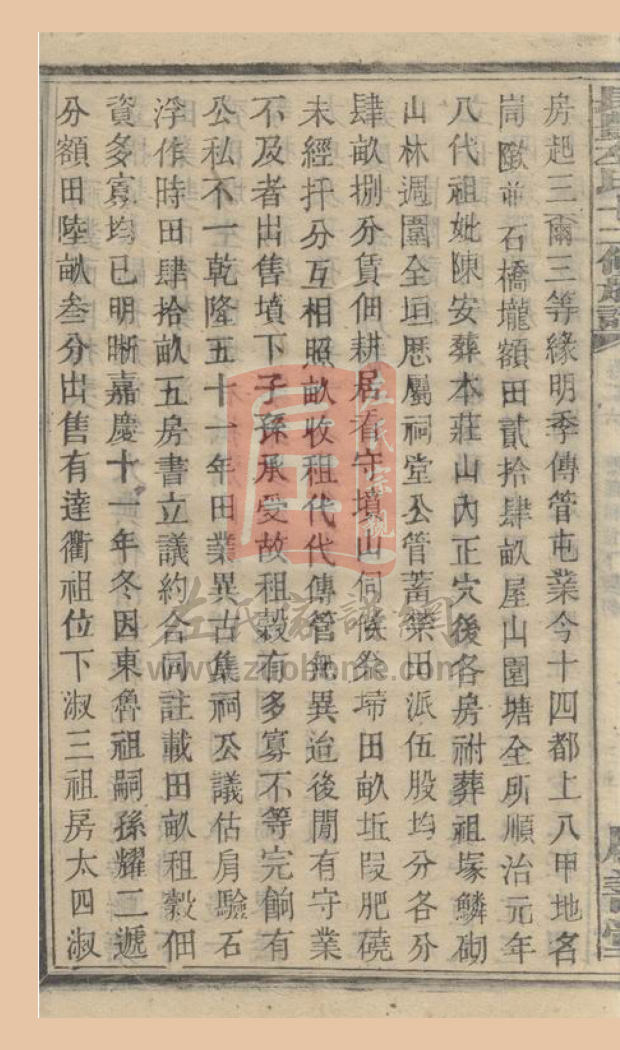 房起三甭三等緣明季傳管屯業今十四都上八甲地名
崗歐並石橋壠額田貳拾肆畝屋山園塘全所順治元年
八代祖妣陳安葬本莊山內正穴後各房祔葬祖塚鱗砌
山林週圍全垣歷屬祠堂公管蓄禁田派伍股均分各分
肆畝捌分賃佃耕居看守墳山伺候祭埽田畝坵叚肥磽
未經扞分互相照畝收租代代傳管無異迨後閒有守業
不及者出售墳下子孫承受故租穀有多寡不等完餉有
公私不一乾隆五十一年田業異古集祠公議估肩驗石
浮作時田肆拾畝五房書立議約合同註載田畝租穀佃
資多寡均已明晰嘉慶十一年冬因東魯祖嗣孫耀二遞
分額田陸畝叁分出售有達衢祖位下淑三祖房太四淑
左氏宗親
左氏族譜網
www.zuohome.com